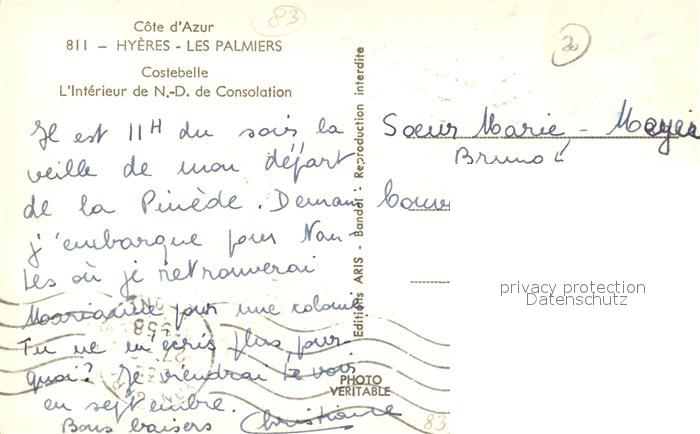 Côte d'Azur
811 – HYÈRES - LES PALMIERS
Costebelle
L'Intérieur de N.-D. de Consolation
Il est 11H du soir la
veille de mon départ
de la Pinède. Demain
j'embarque pour Nan-
tes où je retrouverai
Marianne pour une colonie
Tu ne m'écris plus, pour-
quoi? Je viendrai te voir
en septembre.
Bons baisers Christiane
Editions ARIS - Bandol - Reproduction interdite
PHOTO
VÉRITABLE
Soeur Marie -
Bruno
83
20
83
privacy protection
Datenschutz